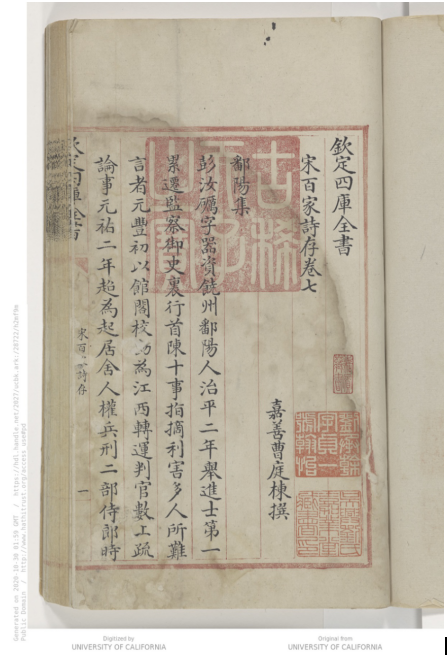 欽定四庫全書
宋百家詩存卷七
嘉善曹庭棟撰
鄱陽集
彭汝礪字器資饒州鄱陽人治平二年舉進士第一
累遷監察御史裏行首陳十事指摘利害多人所難
言者元豐初以館閣校勘為江西轉運判官數上疏
論事元祐二年超為起居舍人權兵刑二部侍郎時
宋百家詩存
一
Generated on 2020-10-30 01:59 GMT
Public Domain
Digitized by
UNIVERSITY OF CALIFORNIA
Original from
UNIVERSITY OF CALIFORNIA